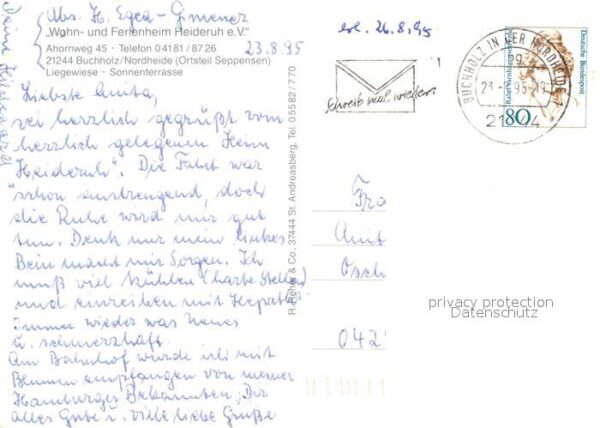 Abs. H. Egea-Gimenez
„Wohn- und Ferienheim Heideruh e.V."
Ahornweg 45 · Telefon 04181 / 87 26
21244 Buchholz/Nordheide (Ortsteil Seppensen)
Liegewiese · Sonnenterrasse
23.8.95
Liebste Anita,
sei herzlich gegrüßt vom
herrlich gelegenen Heim
"Heideruh". Die Fahrt war
schon anstrengend, doch
die Ruhe wird mir gut
tun. Denk nur mein linkes
Bein macht mir Sorgen. Ich
muß viel kühlen (harte Stellen)
und einreiben mit
Immer wieder was Neues
u. schmerzhaft.
Am Bahnhof wurde ich mit
Blumen empfangen von meiner
Hamburger Bekannten. Dir
alles Gute u. viele liebe Grüße
Deine
R. Reher & Co., 37444 St. Andreasberg, Tel. 05582/770
26.8.95
Schreib mal wieder.
BUCHHOLZ IN DER NORDHEIDE
23. 95
21244
Deutsche Bundespost
80
Fra
Anit
Osch
042
privacy protection
Datenschutz